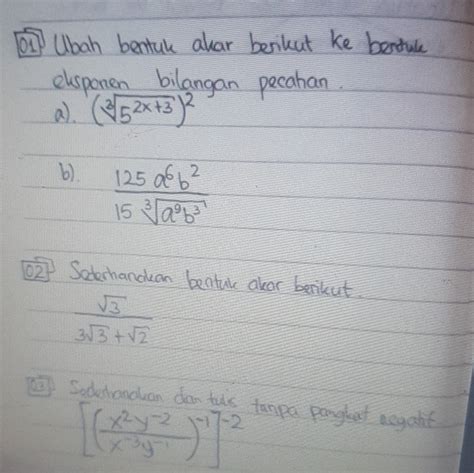 01) Ubah bentuk akar berikut ke bentuk
eksponen bilangan pecahan.
a). (∛5^(2x+3))²
b). 125 a⁶b² / 15 ∛(a⁹b³)
02) Sederhanakan bentuk akar berikut.
√3 / 3√3 + √2
03) Sederhanakan dan tulis tanpa pangkat negatif
[(x²y⁻² / x⁻³y⁻¹)⁻¹]⁻²